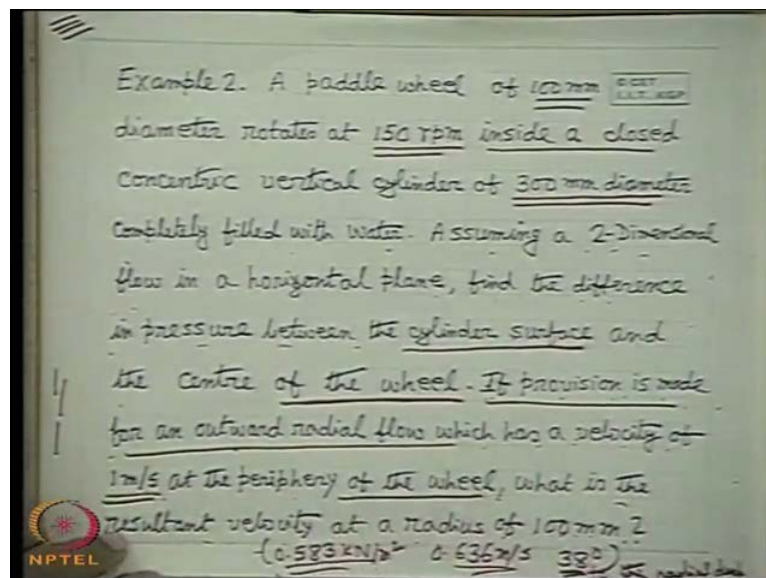 Example 2. A paddle wheel of 100 mm
C.CET
I.I.T. KGP
diameter rotates at 150 rpm inside a closed
concentric vertical cylinder of 300 mm diameter
completely filled with water. Assuming a 2-Dimensional
flow in a horizontal plane, find the difference
in pressure between the cylinder surface and
the centre of the wheel. If provision is made
for an outward radial flow which has a velocity of
1 m/s at the periphery of the wheel, what is the
resultant velocity at a radius of 100 mm?
(0.583 kN/m² 0.636 m/s 38°)
NPTEL